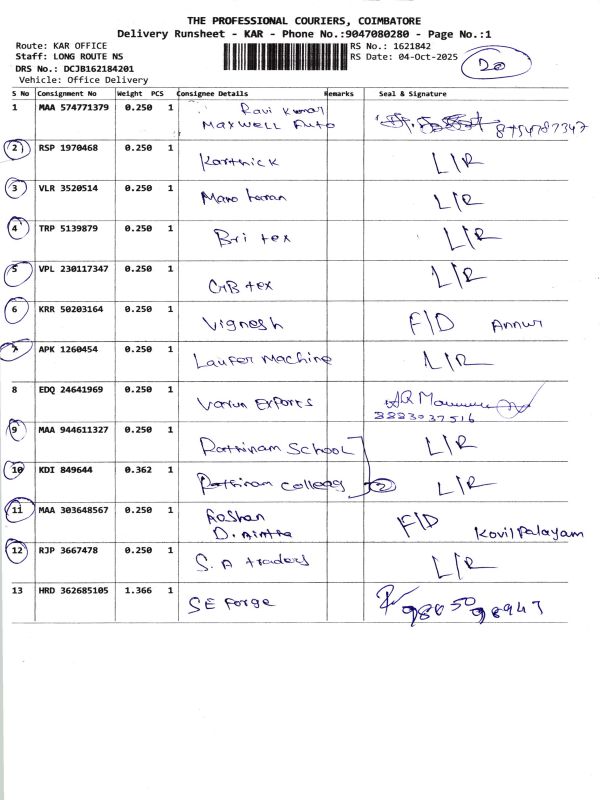 THE PROFESSIONAL COURIERS, COIMBATORE
Delivery Runsheet - KAR - Phone No.:9047080280 - Page No.:1
Route: KAR OFFICE RS No.: 1621842
Staff: LONG ROUTE NS RS Date: 04-Oct-2025
DRS No.: DCJB162184201 20
Vehicle: Office Delivery
S No Consignment No Weight PCS Consignee Details Remarks Seal & Signature
1 MAA 574771379 0.250 1 Ravi Kumar
Maxwell Auto 8754787347
2 RSP 1970468 0.250 1 Karthick L/R
3 VLR 3520514 0.250 1 Mano haran L/R
4 TRP 5139879 0.250 1 Bri tex L/R
5 VPL 230117347 0.250 1 GB tex L/R
6 KRR 50203164 0.250 1 Vignesh F/D Annur
7 APK 1260454 0.250 1 Laufer Machine L/R
8 EDQ 24641969 0.250 1 Varun Exports
9 MAA 944611327 0.250 1 Rathinam School L/R
10 KDI 849644 0.362 1 Rathinam Colleag 2 L/R
11 MAA 303648567 0.250 1 Roshan F/D Kovilpalayam
12 RJP 3667478 0.250 1 S.A traders L/R
13 HRD 362685105 1.366 1 SE Forge